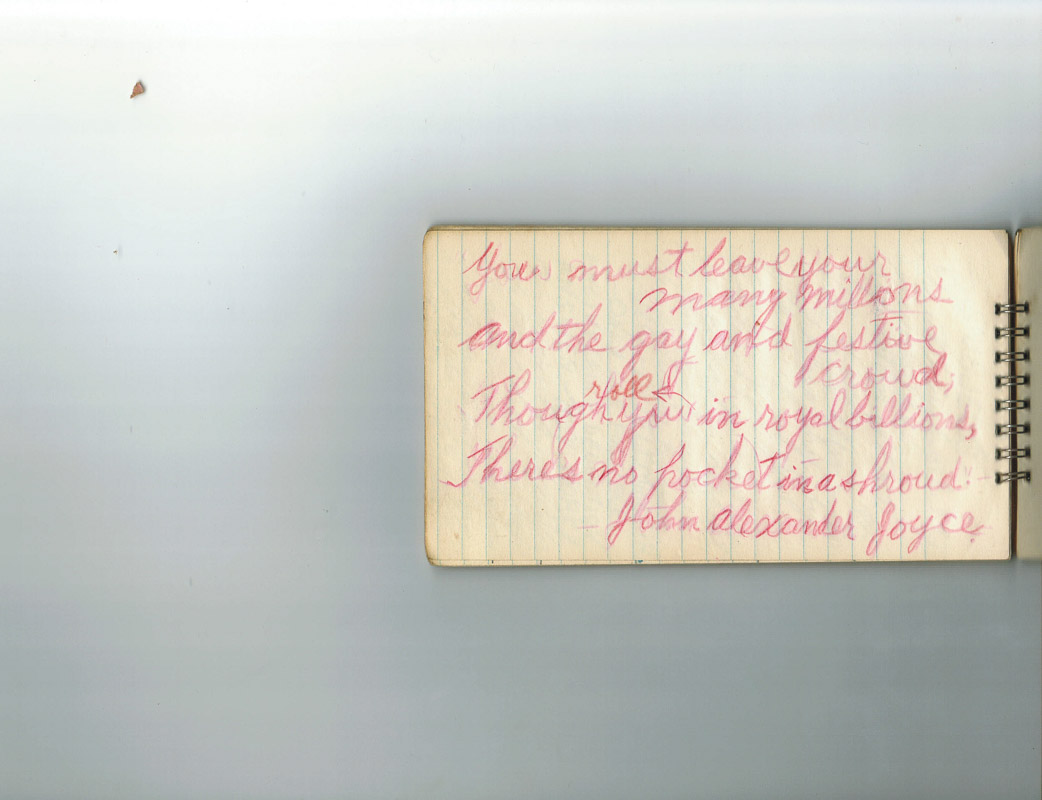 You must leave your
many millions
and the gay and festive
crowd;
roll
Though you in royal billions,
There's no pocket in a shroud."
- John Alexander Joyce.